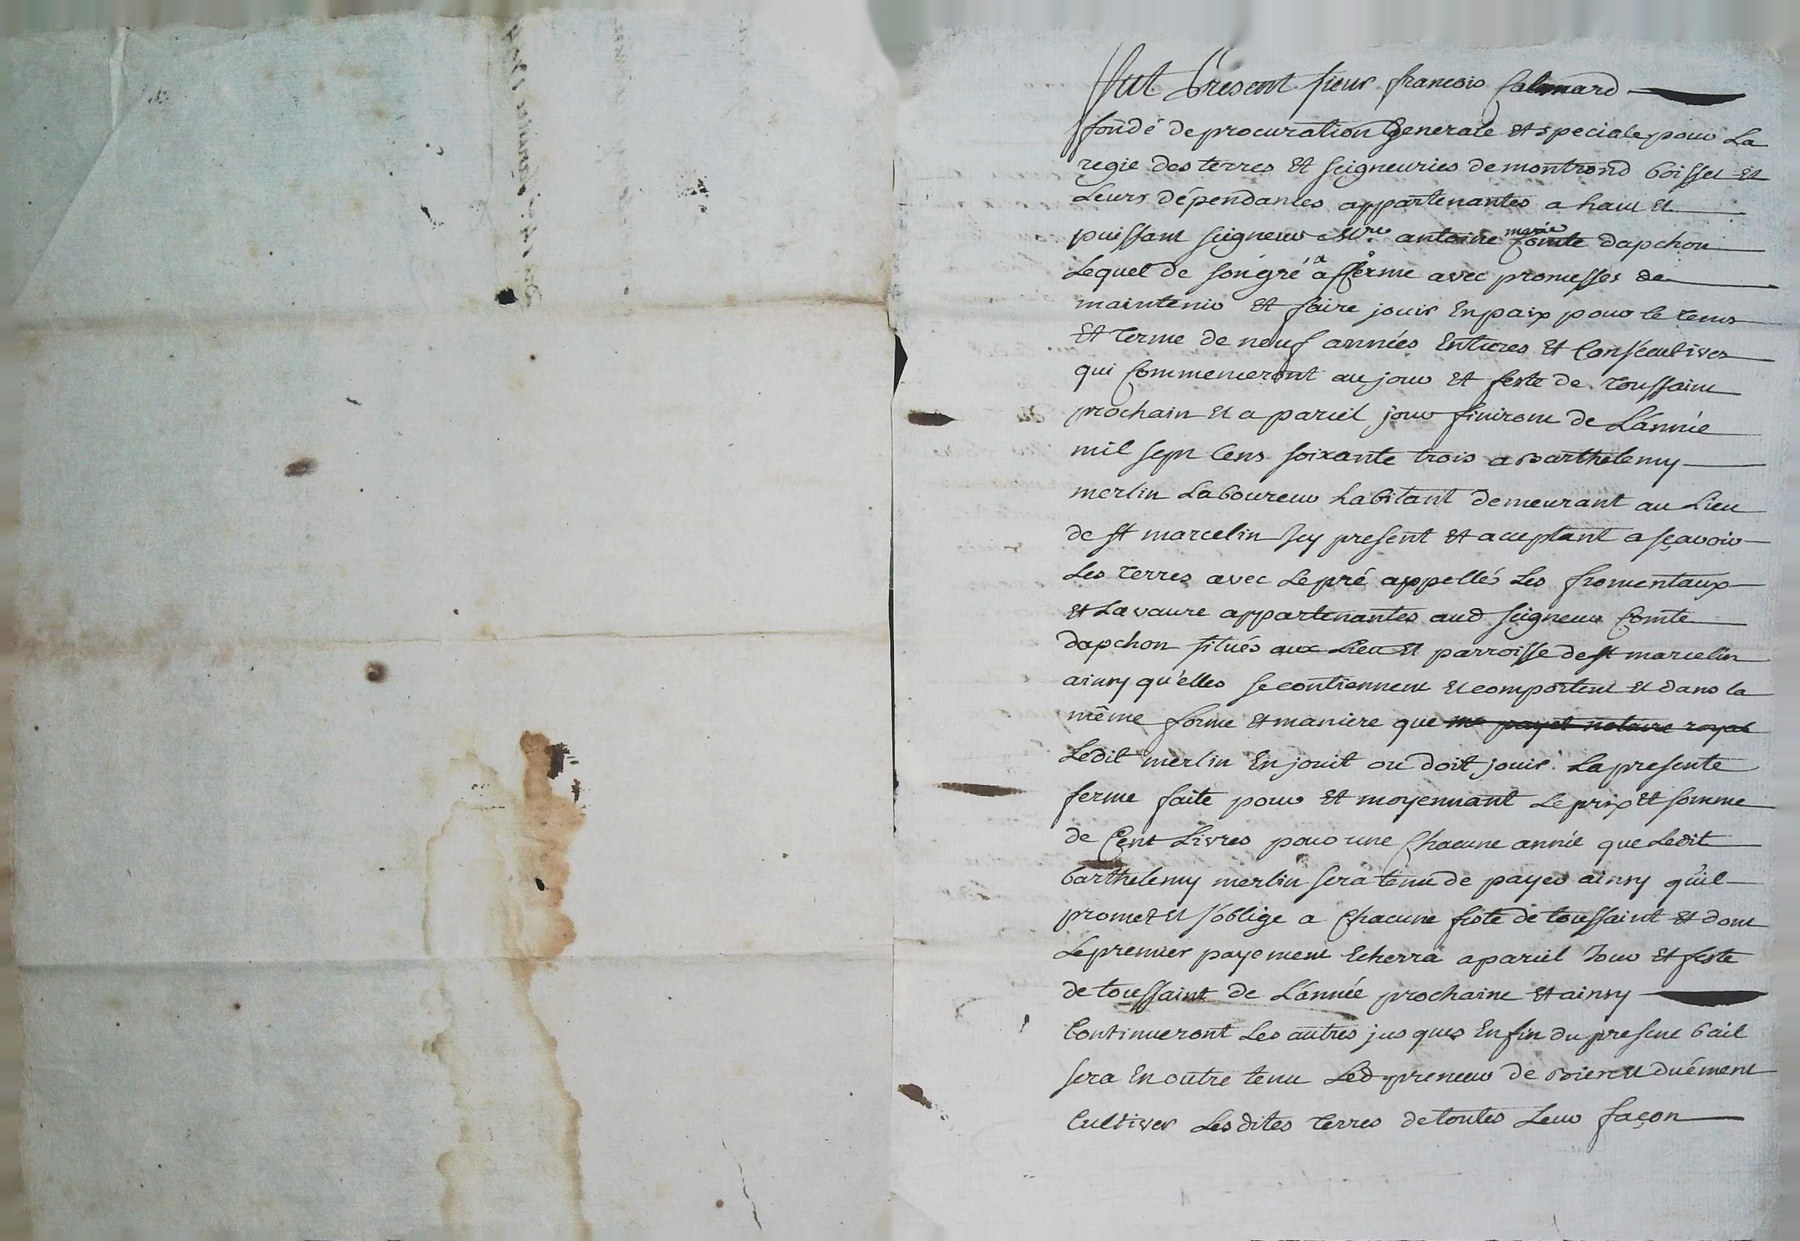 Fut Present sieur francois Calemard
fondé de procuration Generale et speciale pour La
regie des terres et seigneuries de montrond boisset et
Leurs dépendances appartenantes a haut et
puissant seigneur M.re antoine marie Comte dapchon
Lequel de son gré a affermé avec promesses de
maintenir et faire jouir En paix pour le tems
et terme de neuf années Entieres et Consécutives
qui Commenceront au jour et feste de toussaint
prochain et a pareil jour finiront de L'année
mil sept Cens soixante trois a Barthelemy
merlin Laboureur habitant demeurant au Lieu
de st marcelin Icy present et acceptant a sçavoir
Les terres avec Le pré appellés Les fromentaux
et Lavaure appartenantes aud seigneur Comte
dapchon situés aux Lieu et parroisse de st marcelin
ainsy qu'elles se contiennent et comportent et dans la
même forme et maniere que me payet notaire royal
Ledit merlin En jouit ou doit jouir. La presente
ferme faite pour et moyennant Le prix et somme
de Cent Livres pour une Chacune année que Ledit
barthelemy merlin sera tenu de payer ainsy qu'il
promet et s'oblige a Chacune feste de toussaint et dont
Le premier payement Echerra a pareil Jour et feste
de toussaint de L'année prochaine et ainsy
Continueront Les autres jusques En fin du present bail
sera En outre tenu Led preneur de Bien et duëment
Cultiver Les dites terres de toutes Leur façon